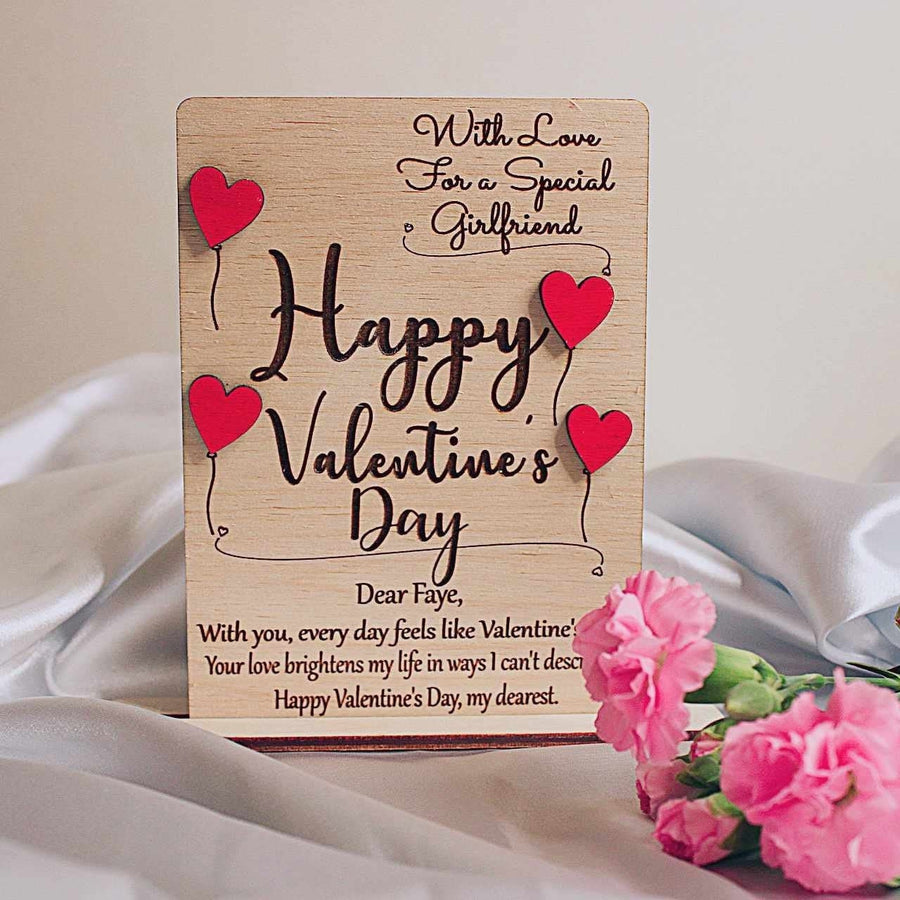 With Love
For a Special
Girlfriend
Happy
Valentine's
Day
Dear Faye,
With you, every day feels like Valentine's
Your love brightens my life in ways I can't
Happy Valentine's Day, my dearest.